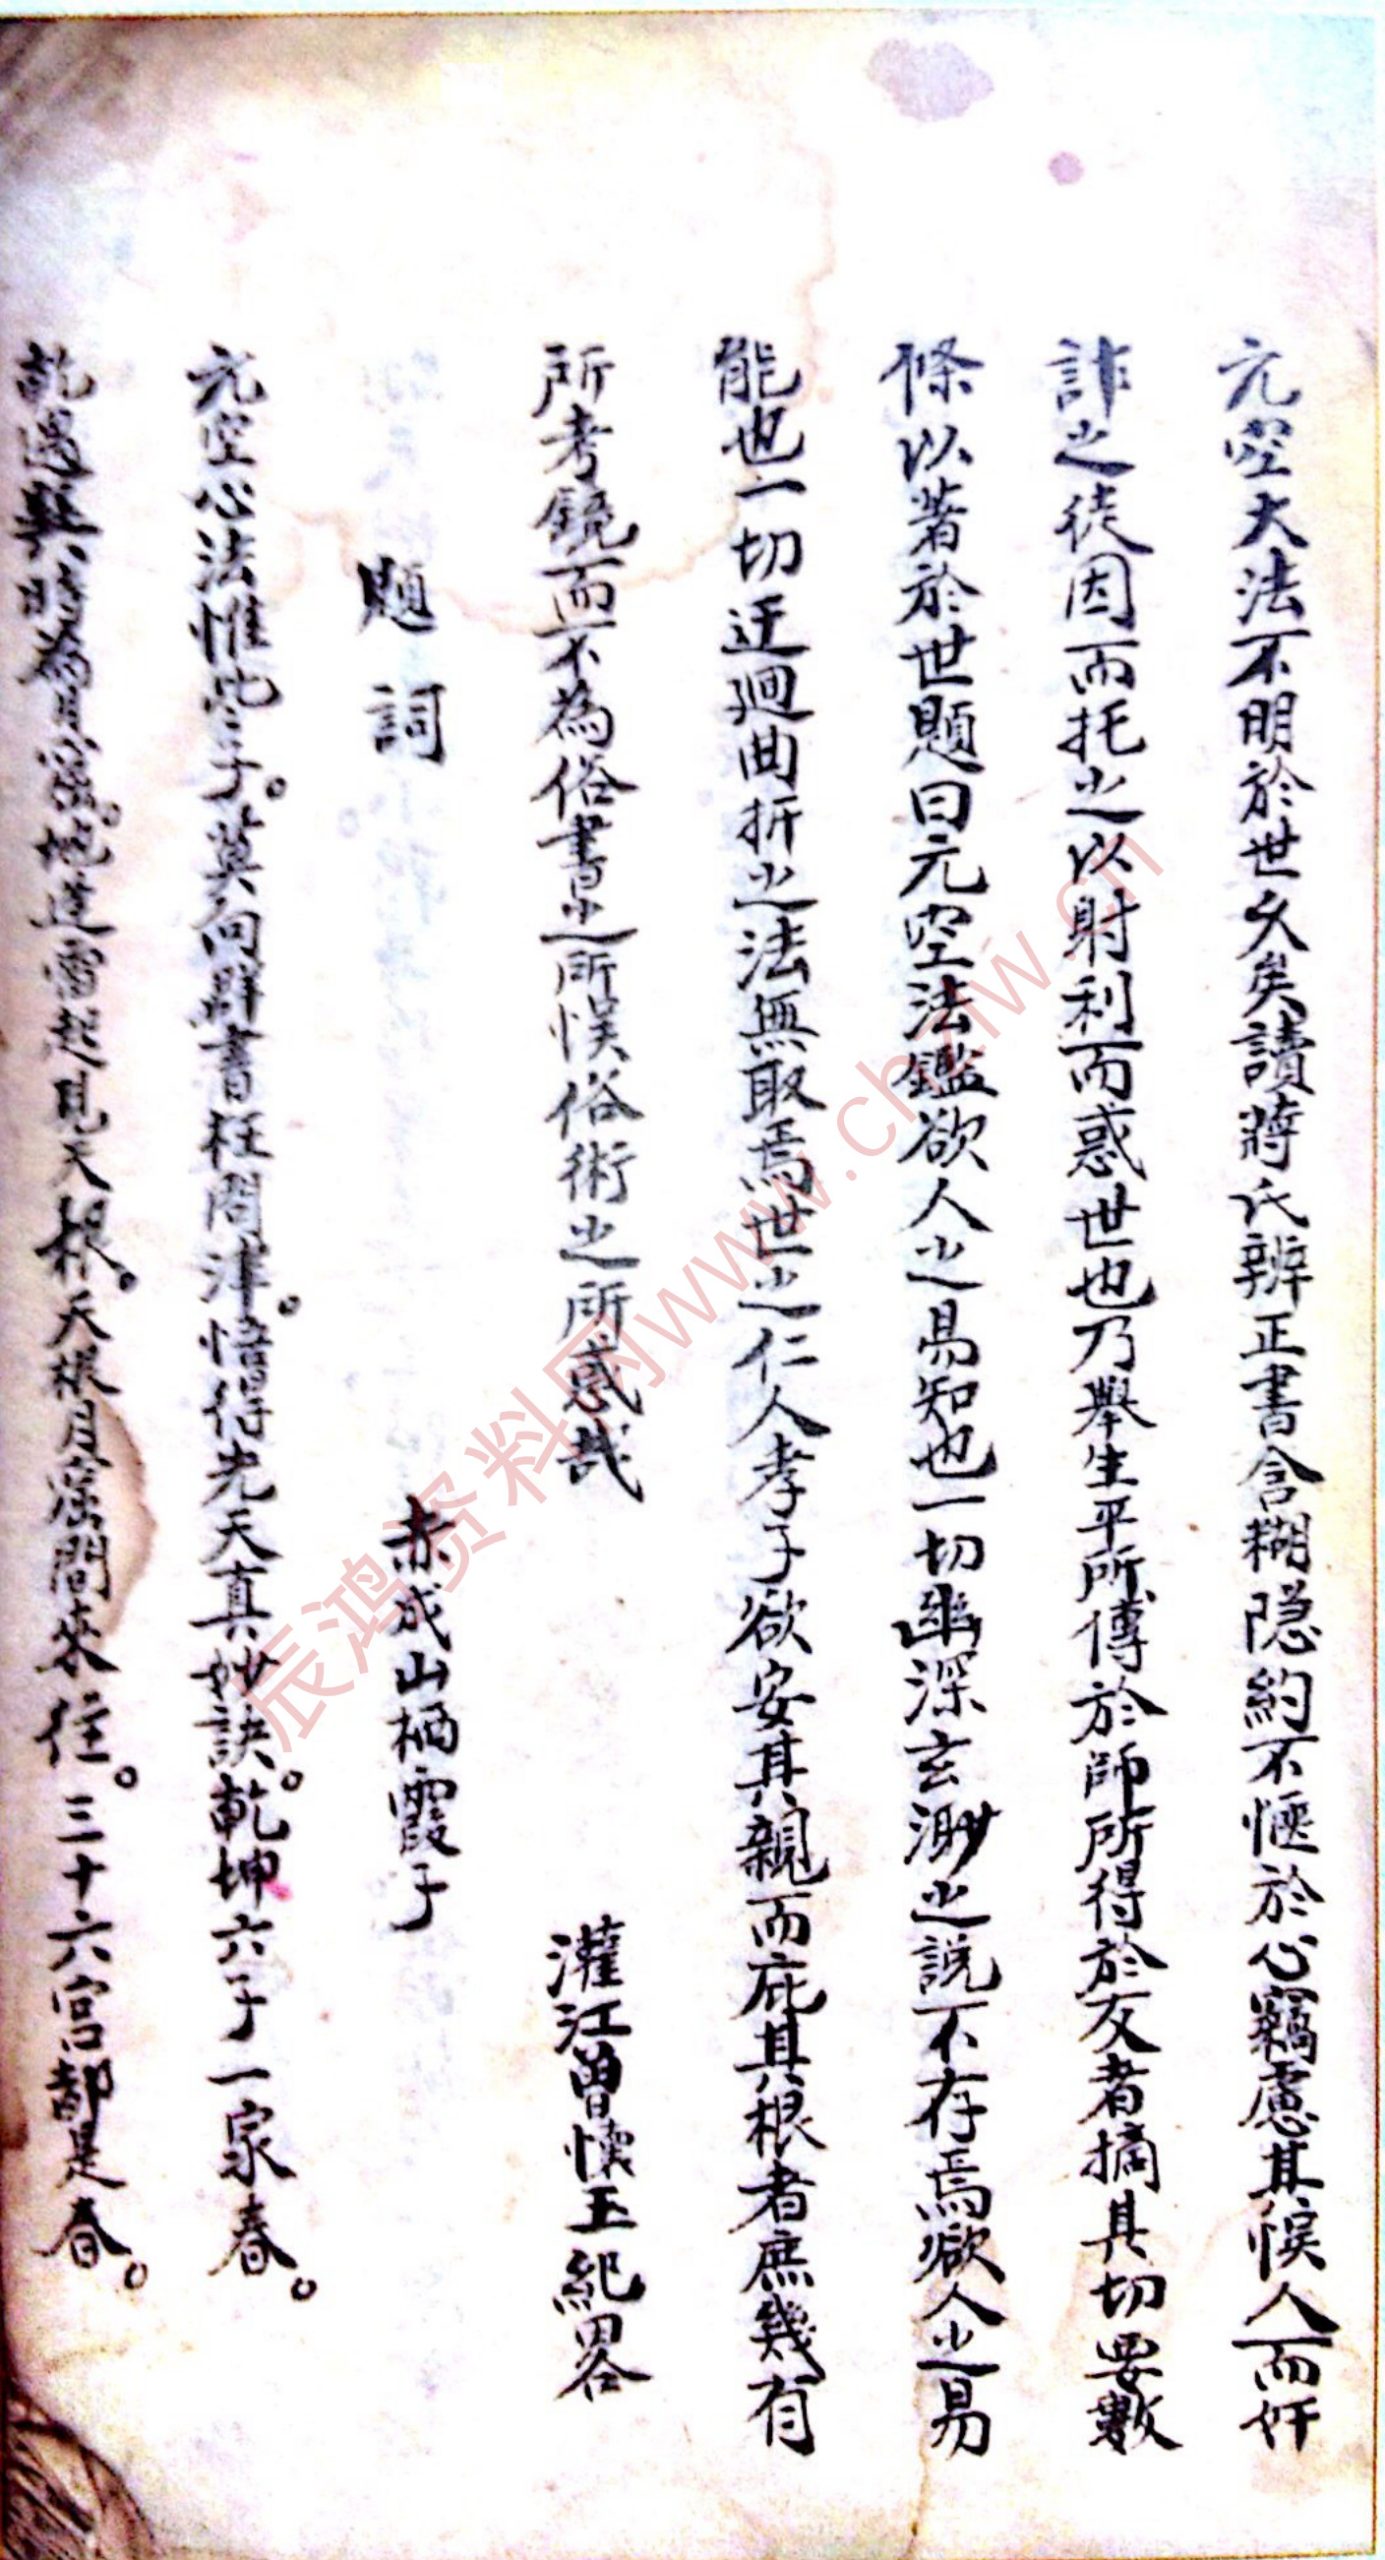 元空大法不明於世久矣讀蔣氏辨正書含糊隱約不愜於心竊慮其悞人而奸
詐之徒因而托之以射利而惑世也乃舉生平所傳於師所得於友者摘其切要數
條以著於世題曰元空法鑑欲人之易知也一切幽深玄渺之説不存焉欲人之易
能也一切迂廻曲折之法無取焉世之仁人孝子欲安其親而庇其根者庶幾有
所考鏡而不為俗書之所悞俗術之所惑哉
灌江曾懷玉紀畧
題詞
赤成山栖霞子
元空心法惟些子。莫向群書枉問津。悟得先天真妙訣。乾坤六子一家春。
乾遇巽時為月窟。地逢雷起見天根。天根月窟間來往。三十六宮都是春。
辰鸿资料网www.chzlw.cn